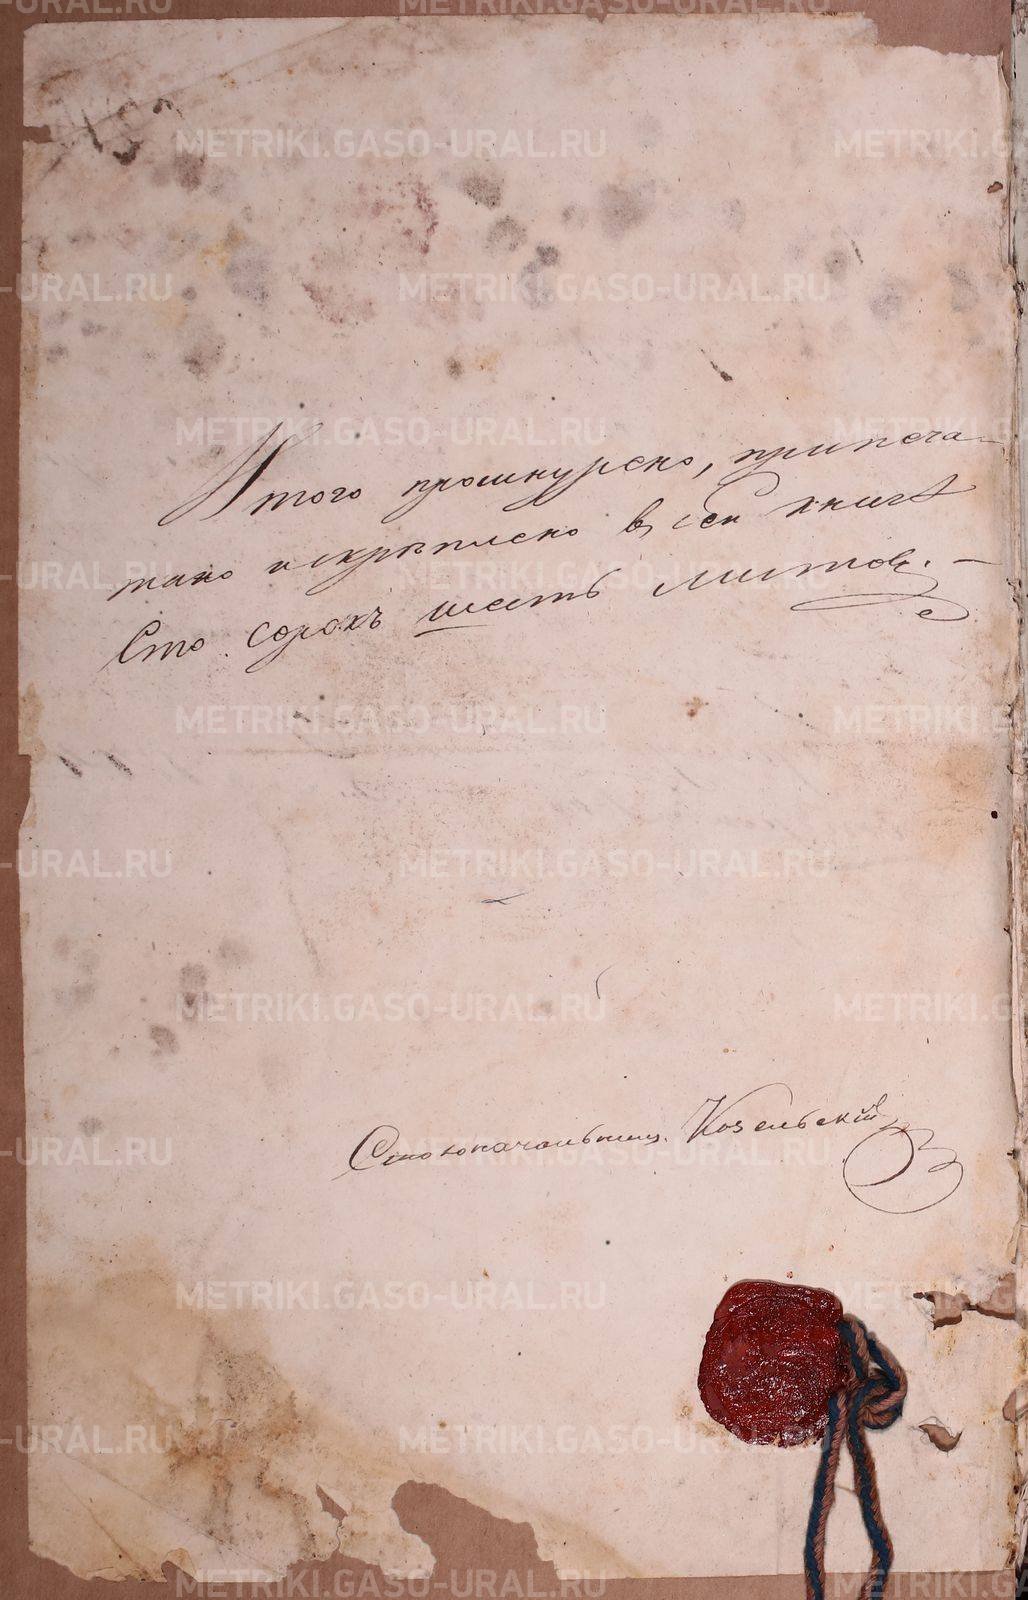 Итого прошнурено, припеча-
тано и скрѣплено в сей книгѣ
Сто сорокъ шесть листов. —
Столоначальник. Козельскій
METRIKI.GASO-URAL.RU